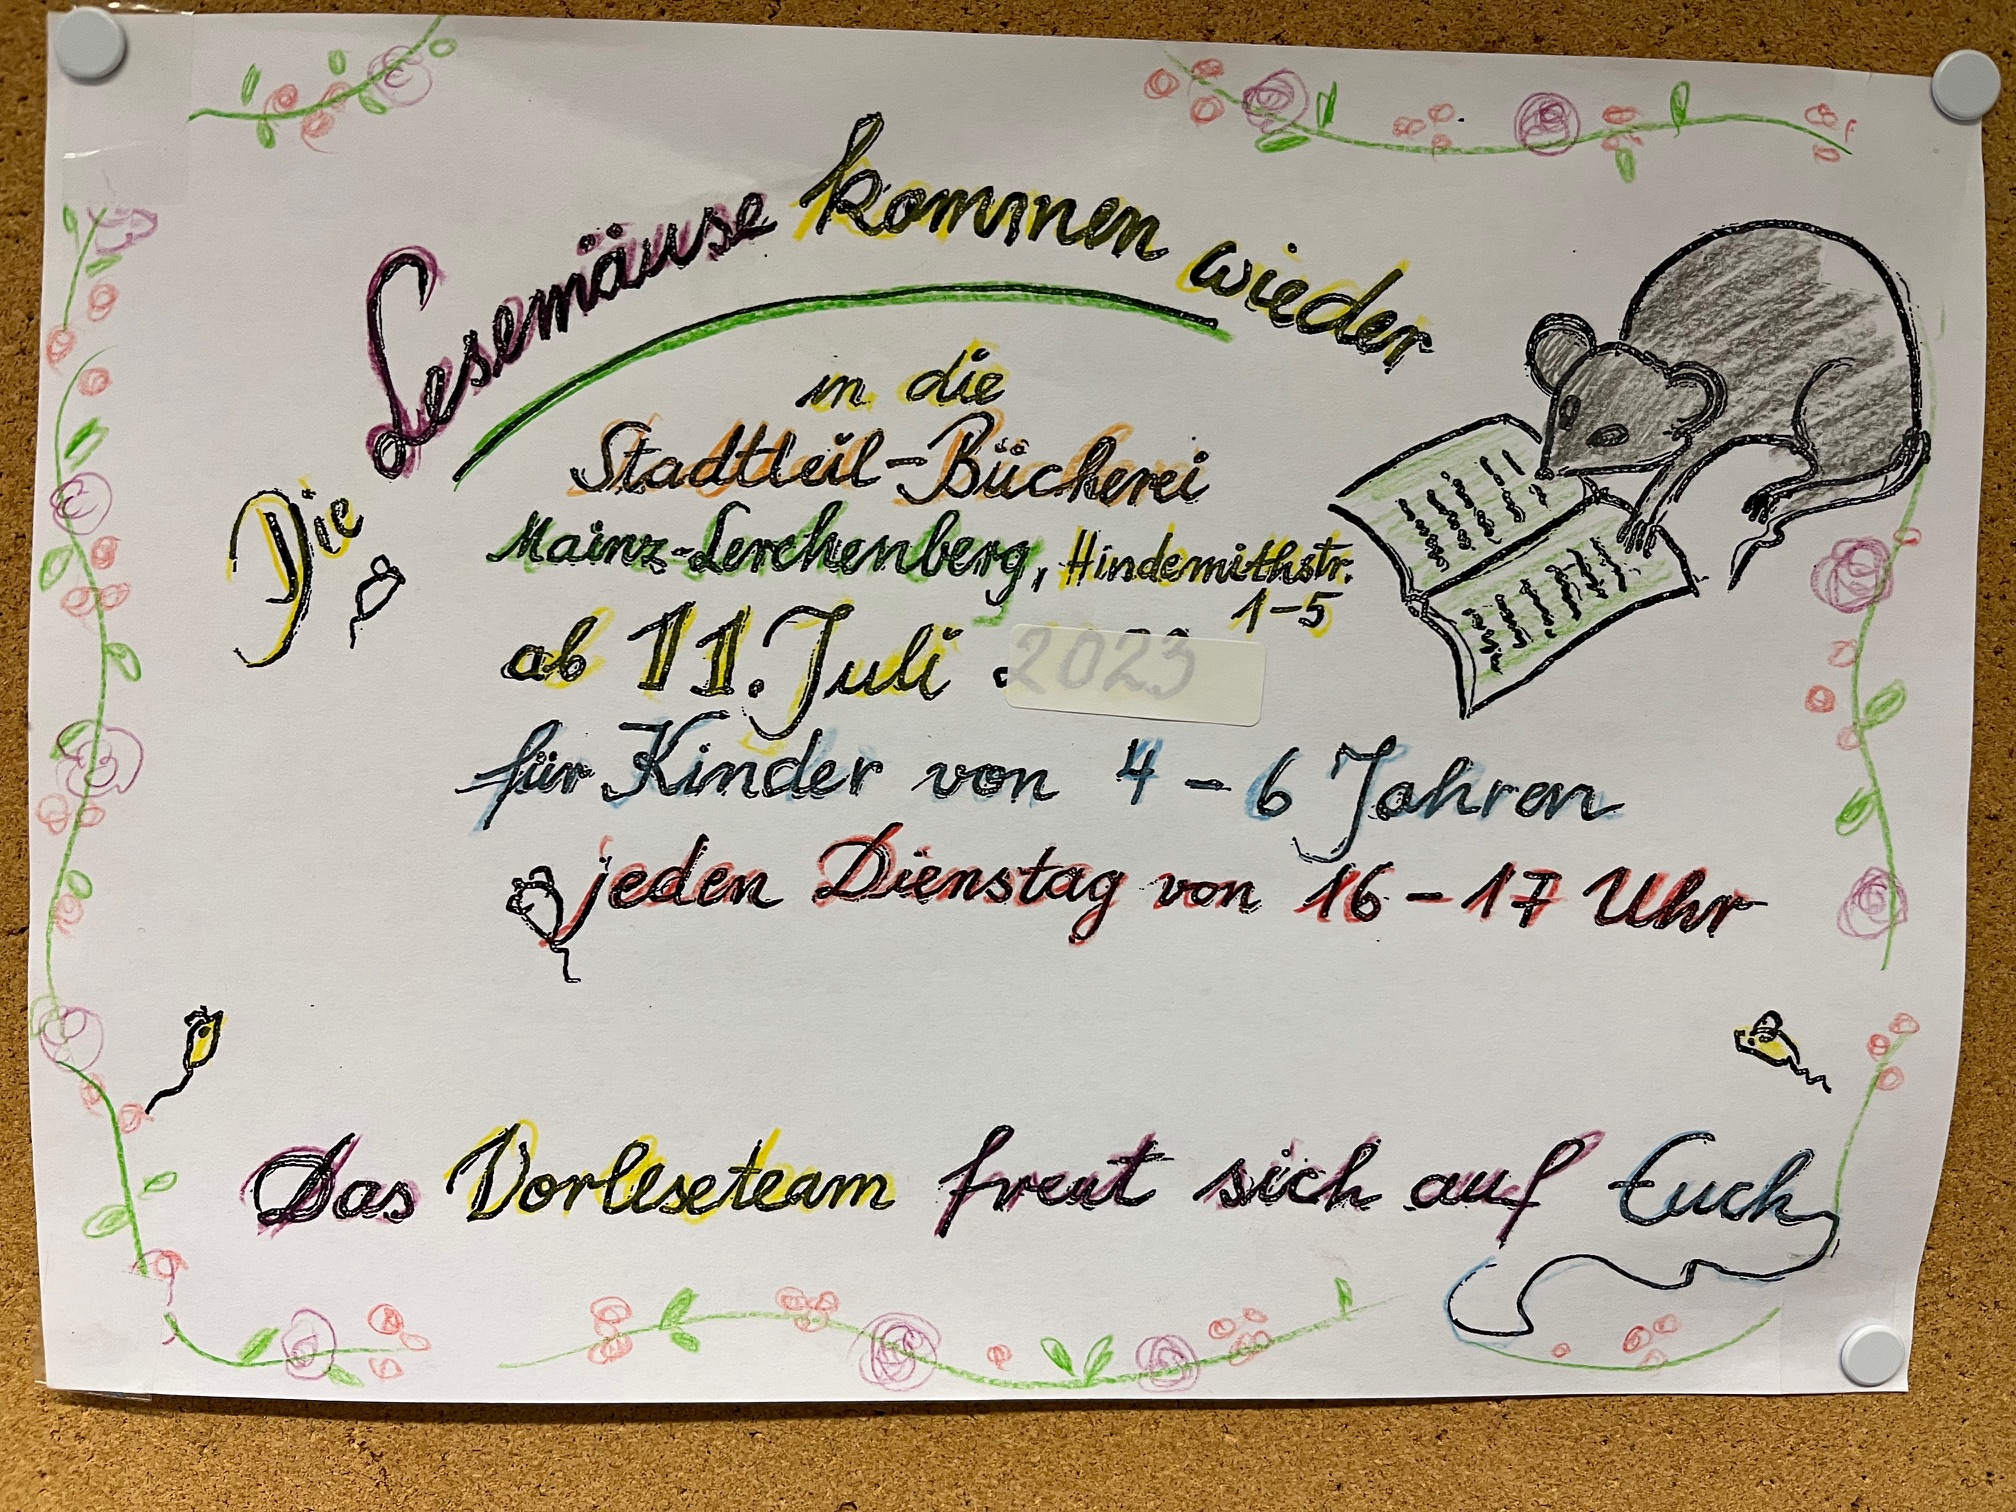 Die Lesemäuse kommen wieder
in die
Stadtteil-Bücherei
Mainz-Lerchenberg, Hindemithstr.
1-5
ab 11. Juli . 2023
für Kinder von 4-6 Jahren
jeden Dienstag von 16-17 Uhr
Das Vorleseteam freut sich auf Euch